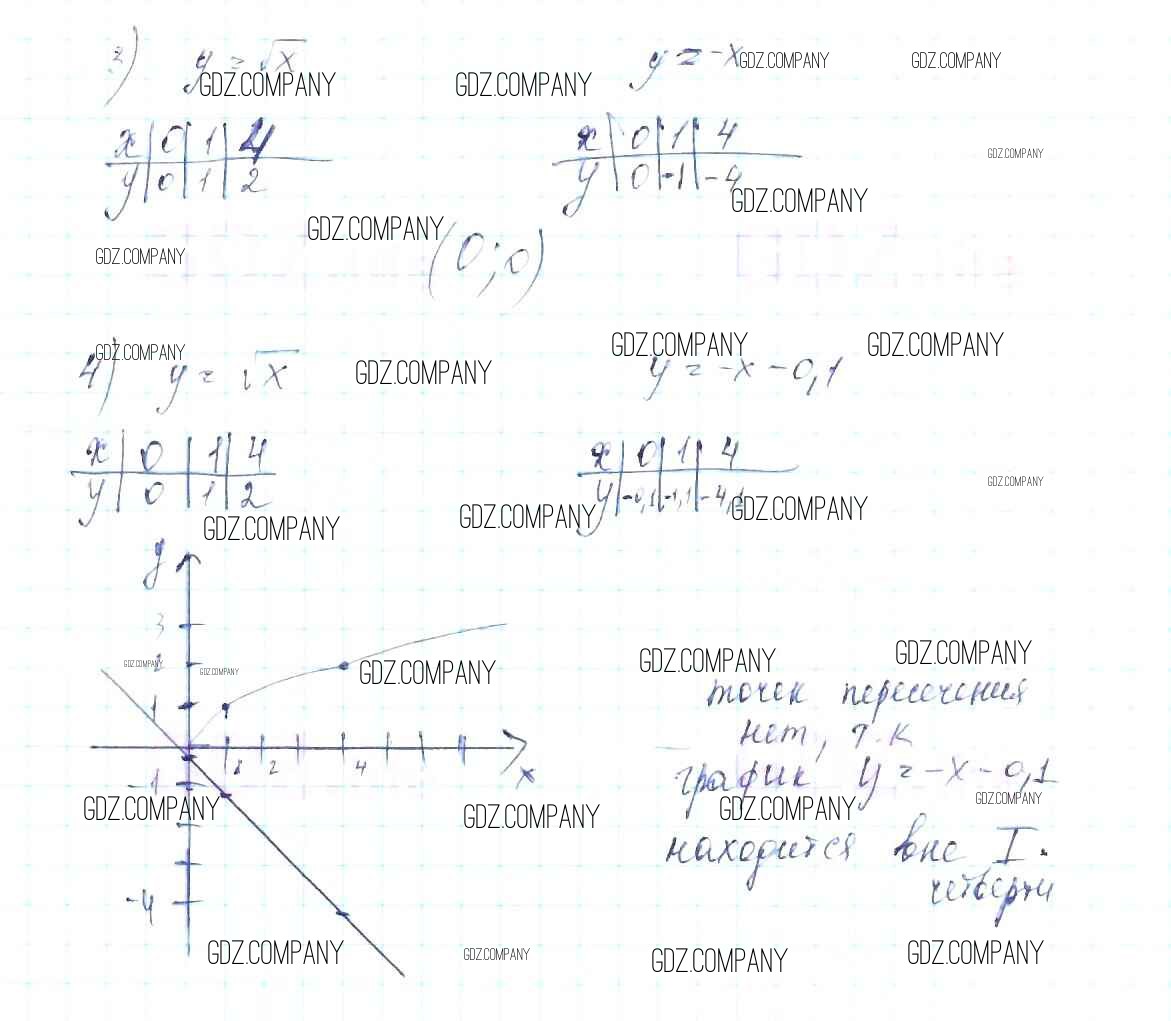 3) y = √x y = -x GDZ.COMPANY GDZ.COMPANY
GDZ.COMPANY GDZ.COMPANY
x 0 1 4 x 0 1 4
GDZ.COMPANY
y 0 1 2 y 0 -1 -4
GDZ.COMPANY
GDZ.COMPANY
GDZ.COMPANY (0;0)
GDZ.COMPANY GDZ.COMPANY GDZ.COMPANY
4) y = √x GDZ.COMPANY y = -x - 0,1
x 0 1 4 x 0 1 4
GDZ.COMPANY
y 0 1 2 y -0,1 -1,1 -4,1
GDZ.COMPANY GDZ.COMPANY GDZ.COMPANY
y
3
GDZ.COMPANY GDZ.COMPANY
2 GDZ.COMPANY GDZ.COMPANY GDZ.COMPANY
1 точек пересечения
нет, т.к
1 2 4 x
график y = -x - 0,1
-1
GDZ.COMPANY GDZ.COMPANY GDZ.COMPANY GDZ.COMPANY
находится вне I
четверти
-4
GDZ.COMPANY GDZ.COMPANY GDZ.COMPANY GDZ.COMPANY